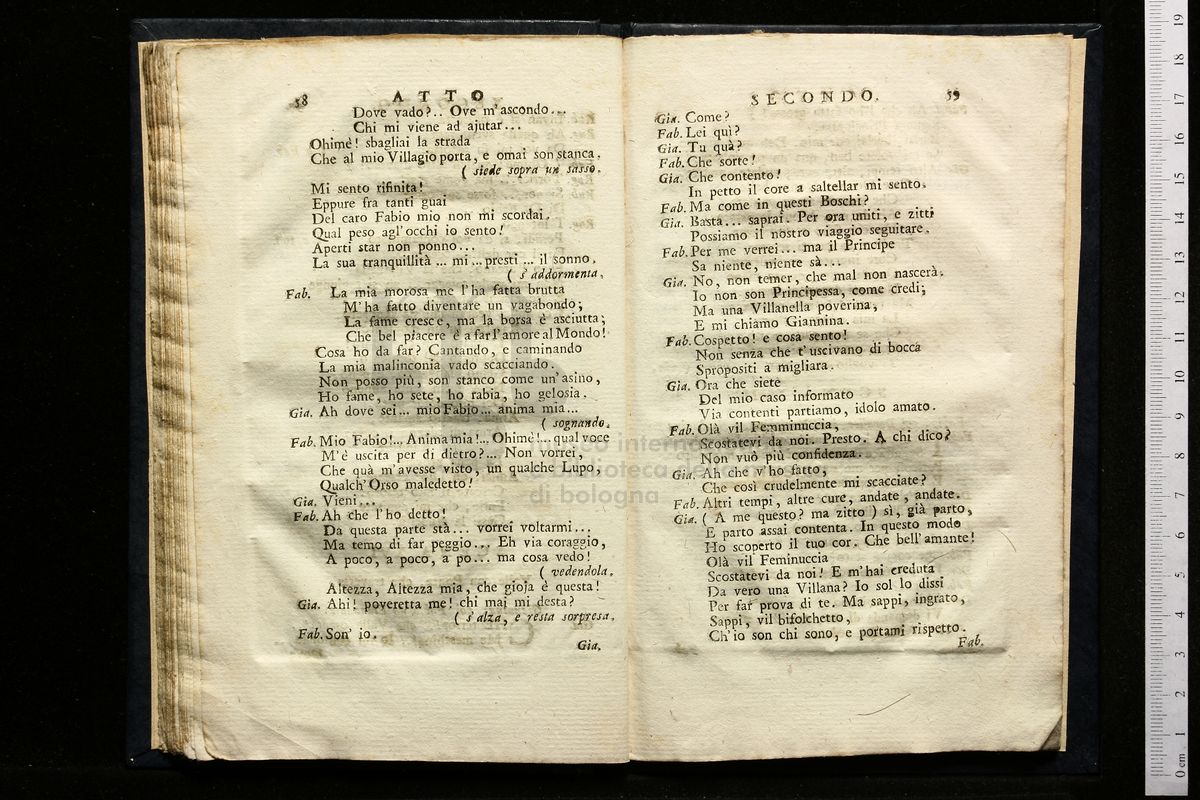 58 ATTO
Dove vado?.. Ove m'ascondo...
Chi mi viene ad ajutar...
Ohimè! sbagliai la strada
Che al mio Villagio porta, e omai son stanca.
( siede sopra un sasso.
Mi sento rifinita!
Eppure fra tanti guai
Del caro Fabio mio non mi scordai.
Qual peso agl'occhi io sento!
Aperti star non ponno...
La sua tranquillità ... mi ... presti ... il sonno.
( s'addormenta.
Fab. La mia morosa me l'ha fatta brutta
M'ha fatto diventare un vagabondo;
La fame cresce, ma la borsa è asciutta;
Che bel piacere è a far l'amore al Mondo!
Cosa ho da far? Cantando, e caminando
La mia malinconia vado scacciando.
Non posso più, son stanco come un'asino,
Ho fame, ho sete, ho rabia, ho gelosia.
Gia. Ah dove sei... mio Fabio... anima mia...
( sognando.
Fab. Mio Fabio!... Anima mia!... Ohimè!... qual voce
M'è uscita per di dietro?... Non vorrei,
Che quà m'avesse visto, un qualche Lupo,
Qualch'Orso maledetto!
Gia. Vieni...
Fab. Ah che l'ho detto!
Da questa parte stà... vorrei voltarmi...
Ma temo di far peggio... Eh via coraggio,
A poco, a poco, a po... ma cosa vedo!
( vedendola.
Altezza, Altezza mia, che gioja è questa!
Gia. Ahi! poveretta me! chi mai mi desta?
( s'alza, e resta sorpresa.
Fab. Son' io.
Gia.
SECONDO. 59
Gia. Come?
Fab. Lei quì?
Gia. Tu quà?
Fab. Che sorte!
Gia. Che contento!
In petto il core a saltellar mi sento.
Fab. Ma come in questi Boschi?
Gia. Basta... saprai. Per ora uniti, e zitti
Possiamo il nostro viaggio seguitare.
Fab. Per me verrei... ma il Principe
Sa niente, niente sà...
Gia. No, non temer, che mal non nascerà.
Io non son Principessa, come credi;
Ma una Villanella poverina,
E mi chiamo Giannina.
Fab. Cospetto! e cosa sento!
Non senza che t'uscivano di bocca
Spropositi a migliara.
Gia. Ora che siete
Del mio caso informato
Via contenti partiamo, idolo amato.
Fab. Olà vil Femminuccia,
Scostatevi da noi. Presto. A chi dico?
Non vuò più confidenza.
Gia. Ah che v'ho fatto,
Che così crudelmente mi scacciate?
Fab. Altri tempi, altre cure, andate, andate.
Gia. ( A me questo? ma zitto ) sì, già parto,
E parto assai contenta. In questo modo
Ho scoperto il tuo cor. Che bell'amante!
Olà vil Feminuccia
Scostatevi da noi! E m'hai creduta
Da vero una Villana? Io sol lo dissi
Per far prova di te. Ma sappi, ingrato,
Sappi, vil bifolchetto,
Ch'io son chi sono, e portami rispetto.
Fab.